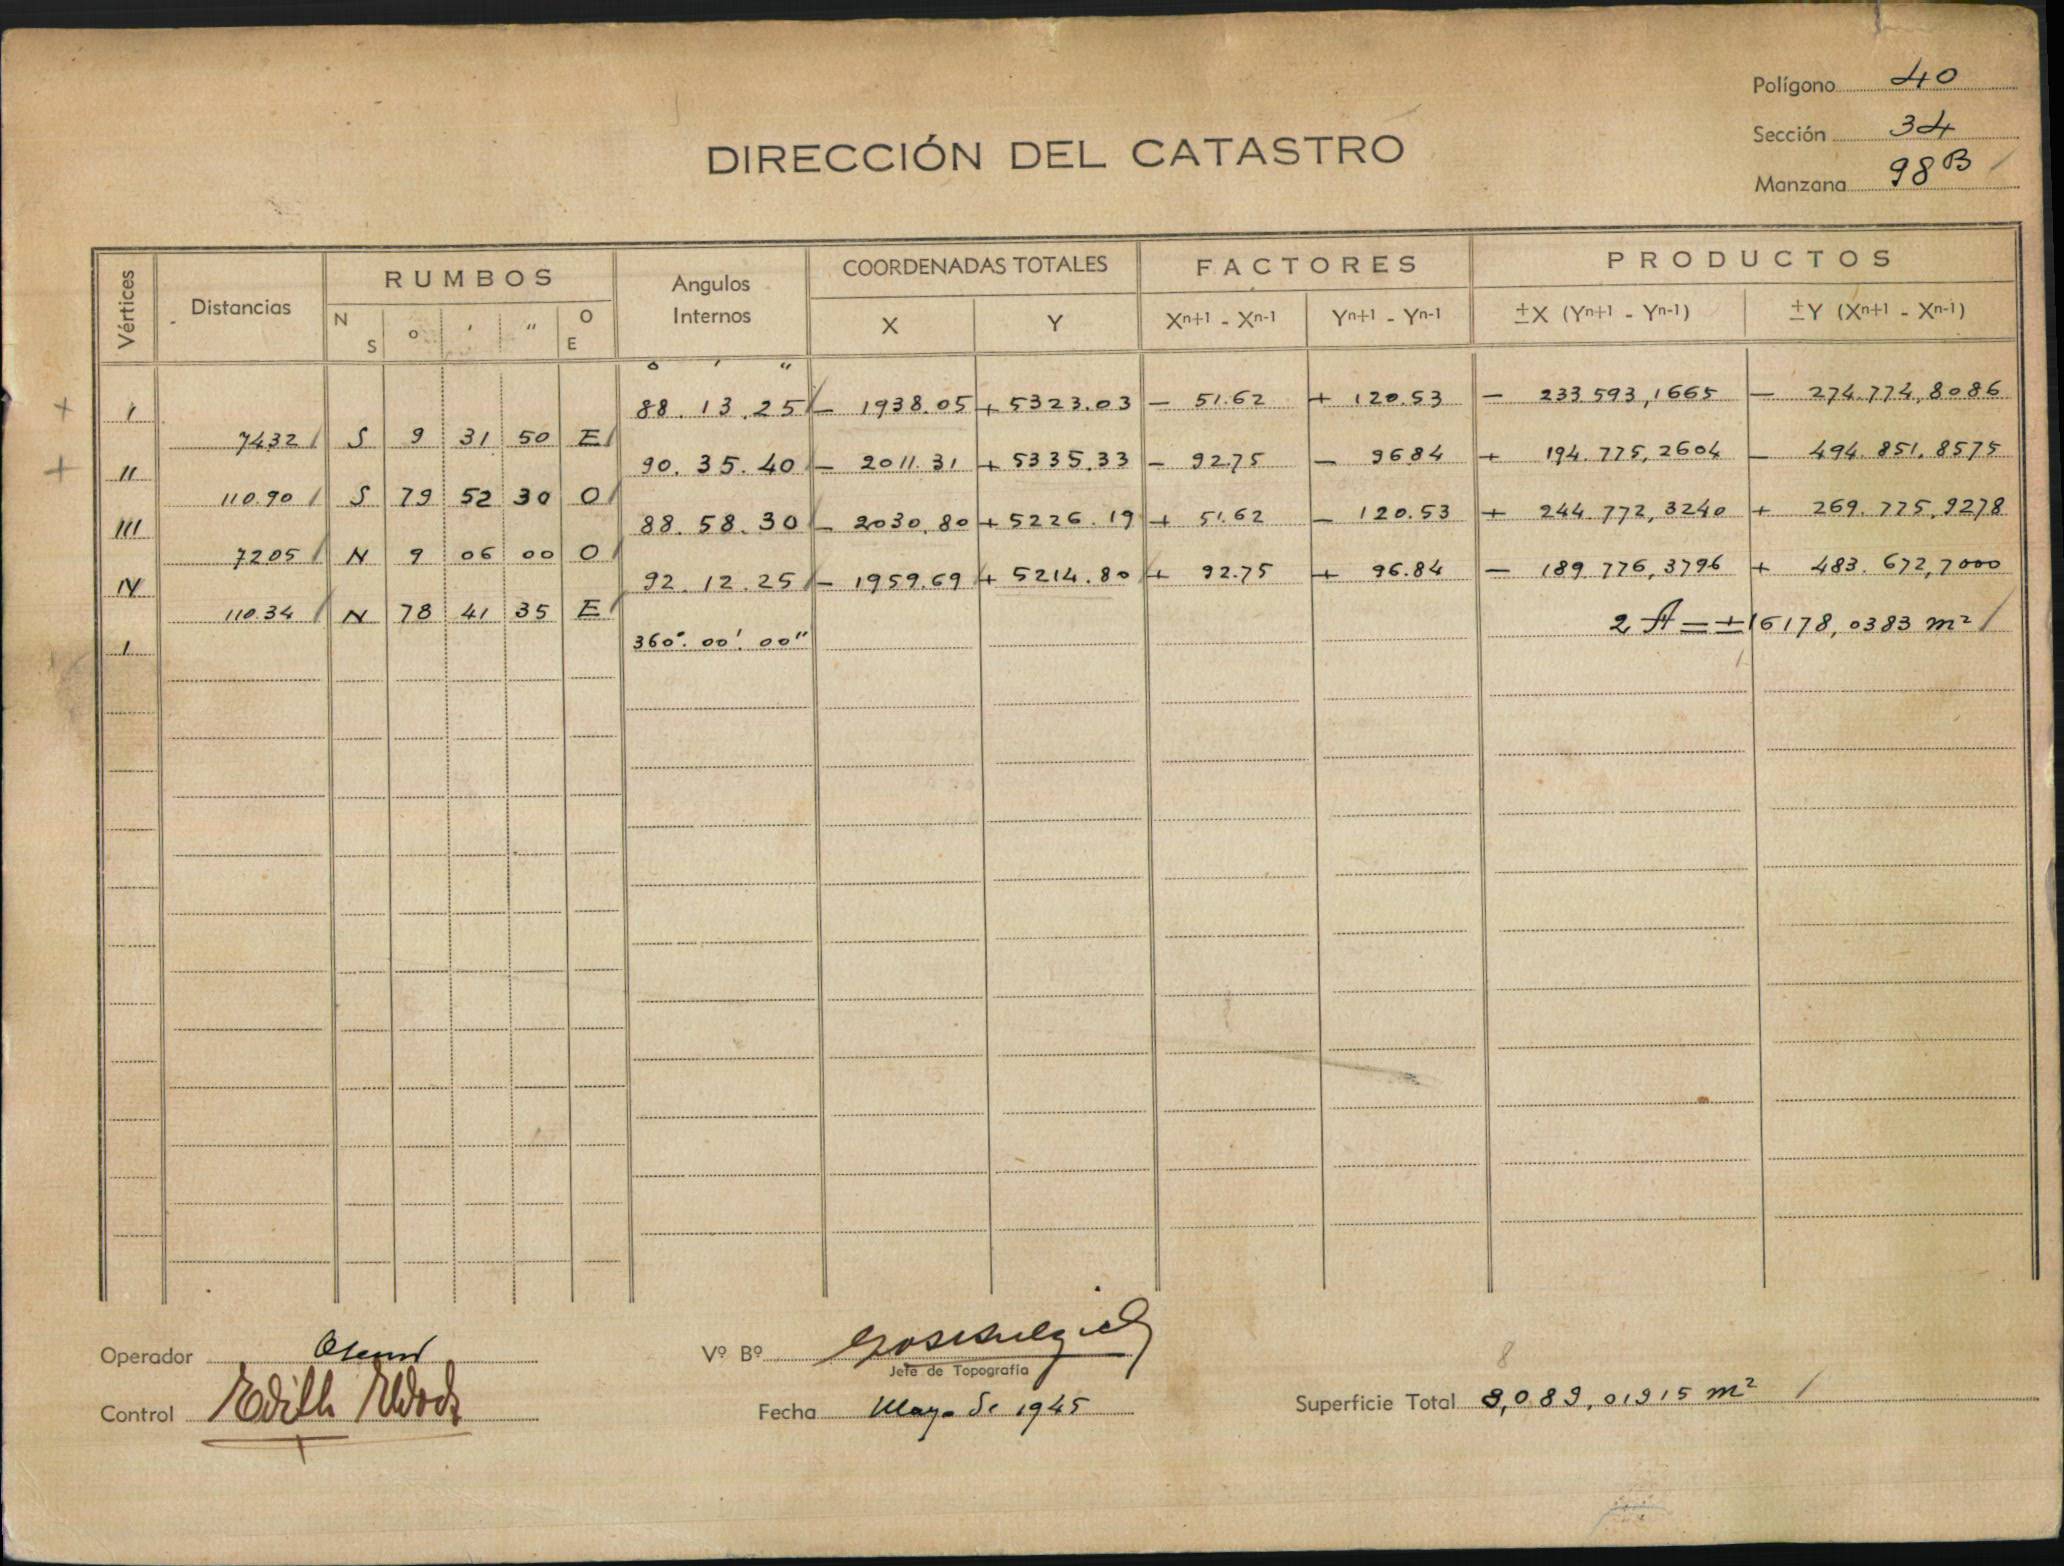 Polígono 40
Sección 34
Manzana 98 B
DIRECCIÓN DEL CATASTRO
Vértices Distancias RUMBOS Angulos Internos COORDENADAS TOTALES FACTORES PRODUCTOS
N S o ' " O E X Y Xn+1 - Xn-1 Yn+1 - Yn-1 ±X (Yn+1 - Yn-1) ±Y (Xn+1 - Xn-1)
o ' "
+ I 88. 13. 25 - 1938.05 + 5323.03 - 51.62 + 120.53 - 233 593,1665 - 274.774,8086
7432 S 9 31 50 E
+ II 90. 35. 40 - 2011.31 + 5335.33 - 92.75 - 96.84 + 194.775,2604 - 494.851,8575
110.90 S 79 52 30 O
III 88. 58. 30 - 2030.80 + 5226.19 + 51.62 - 120.53 + 244.772,3240 + 269.775,9278
7205 N 9 06 00 O
IV 92. 12. 25 - 1959.69 + 5214.80 + 92.75 + 96.84 - 189.776,3796 + 483.672,7000
110.34 N 78 41 35 E
2 A = ±16178,0383 m²
I 360°. 00'. 00"
Operador
Vº Bº
Jefe de Topografía
8
Control Edith
Fecha Mayo de 1945
Superficie Total 8,089,01915 m²